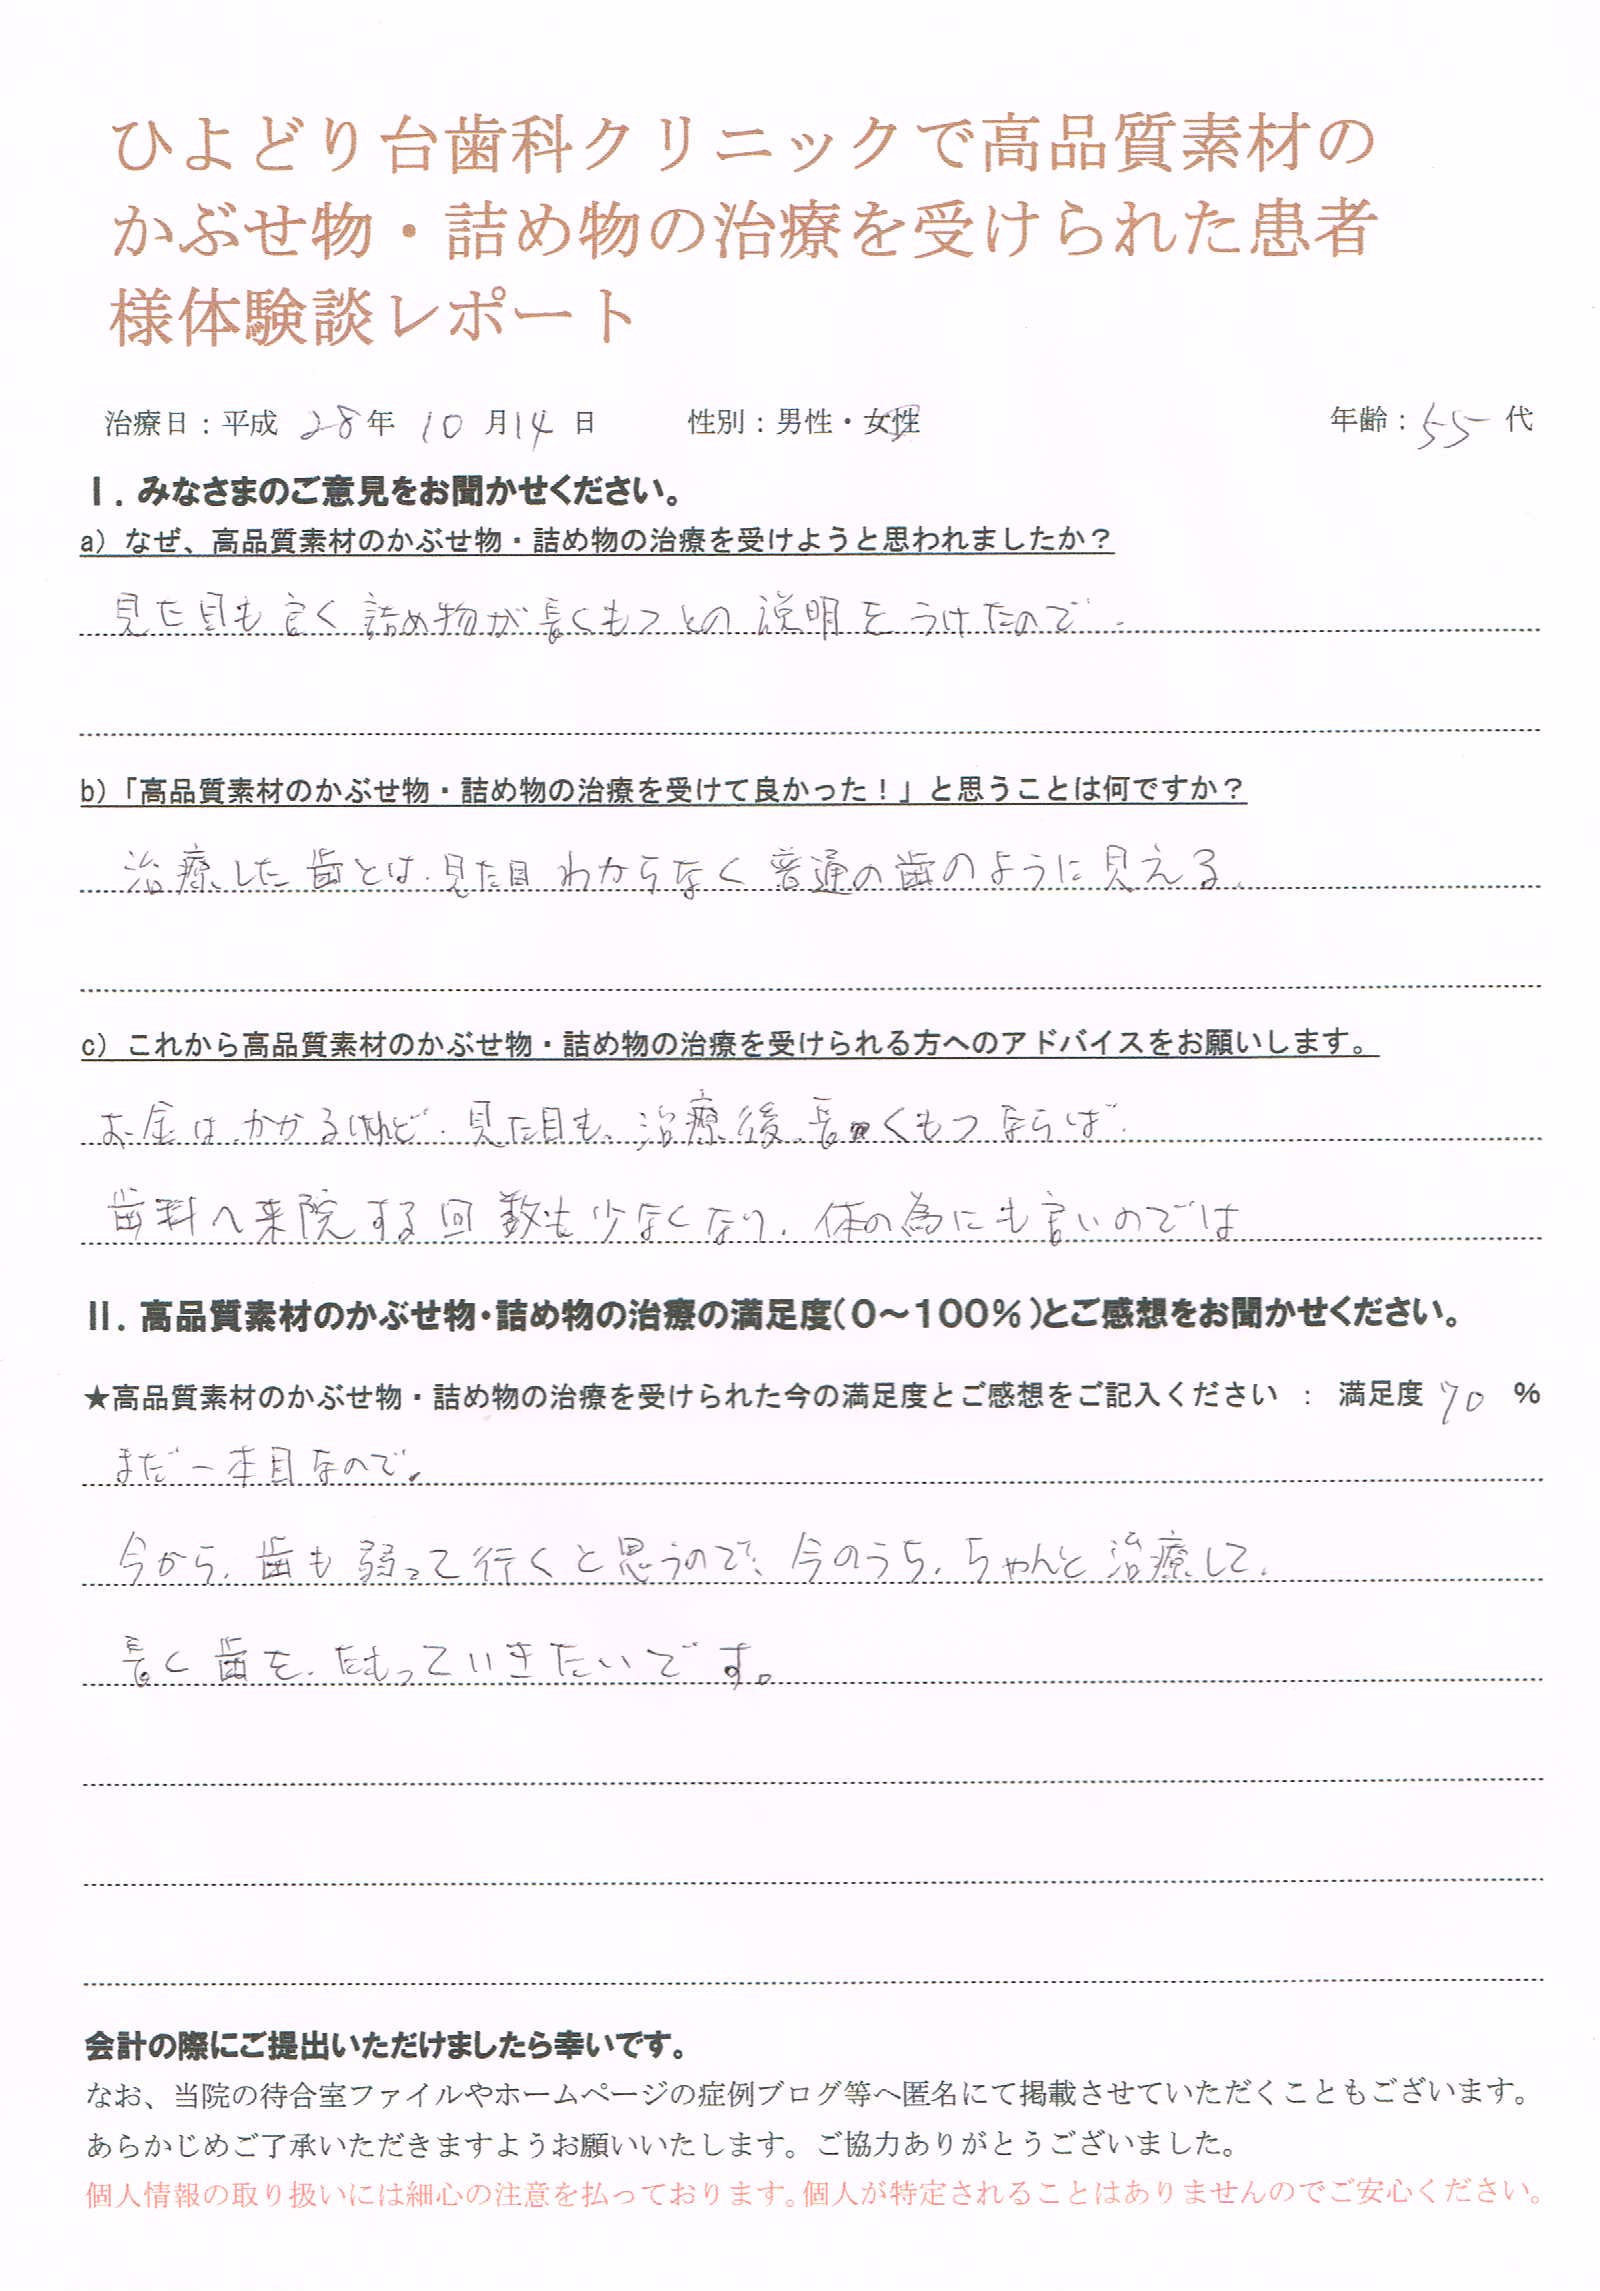 ひよどり台歯科クリニックで高品質素材の
かぶせ物・詰め物の治療を受けられた患者
様体験談レポート
治療日：平成 28 年 10 月 14 日 性別：男性・女性 年齢：55 代
Ⅰ. みなさまのご意見をお聞かせください。
a) なぜ、高品質素材のかぶせ物・詰め物の治療を受けようと思われましたか？
見た目も良く詰め物が長くもつとの説明をうけたので.
b)「高品質素材のかぶせ物・詰め物の治療を受けて良かった！」と思うことは何ですか？
治療した歯とは、見た目わからなく普通の歯のように見える.
c) これから高品質素材のかぶせ物・詰め物の治療を受けられる方へのアドバイスをお願いします。
お金は、かかるけれど、見た目も、治療後、長くもつならば、
歯科へ来院する回数も少なくなり、体の為にも良いのでは
Ⅱ. 高品質素材のかぶせ物・詰め物の治療の満足度（0～100％）とご感想をお聞かせください。
★高品質素材のかぶせ物・詰め物の治療を受けられた今の満足度とご感想をご記入ください ： 満足度 70 ％
まだ一本目なので、
今から、歯も弱って行くと思うので、今のうち、ちゃんと治療して、
長く歯を、たもっていきたいです。
会計の際にご提出いただけましたら幸いです。
なお、当院の待合室ファイルやホームページの症例ブログ等へ匿名にて掲載させていただくこともございます。
あらかじめご了承いただきますようお願いいたします。ご協力ありがとうございました。
個人情報の取り扱いには細心の注意を払っております。個人が特定されることはありませんのでご安心ください。